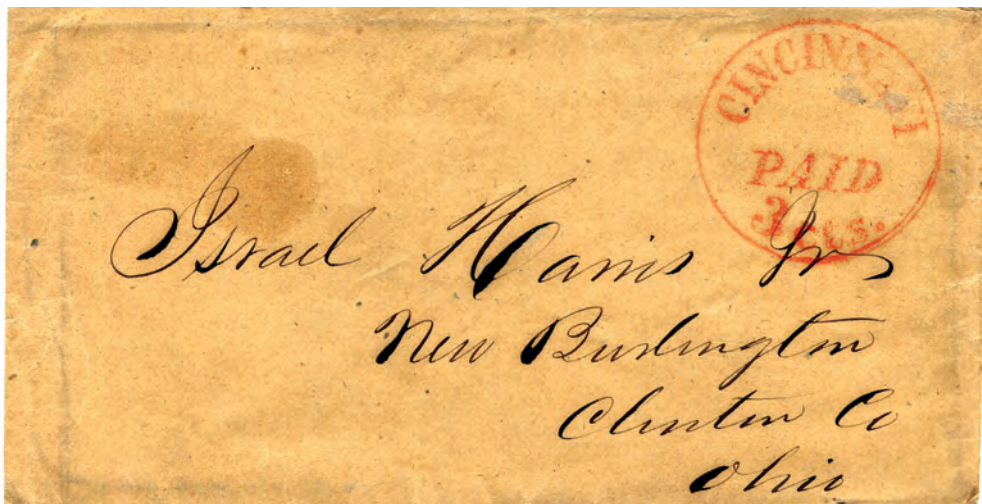 CINCINNATI
PAID
3 cts.
Israel Harris Jr
New Burlington
Clinton Co
Ohio